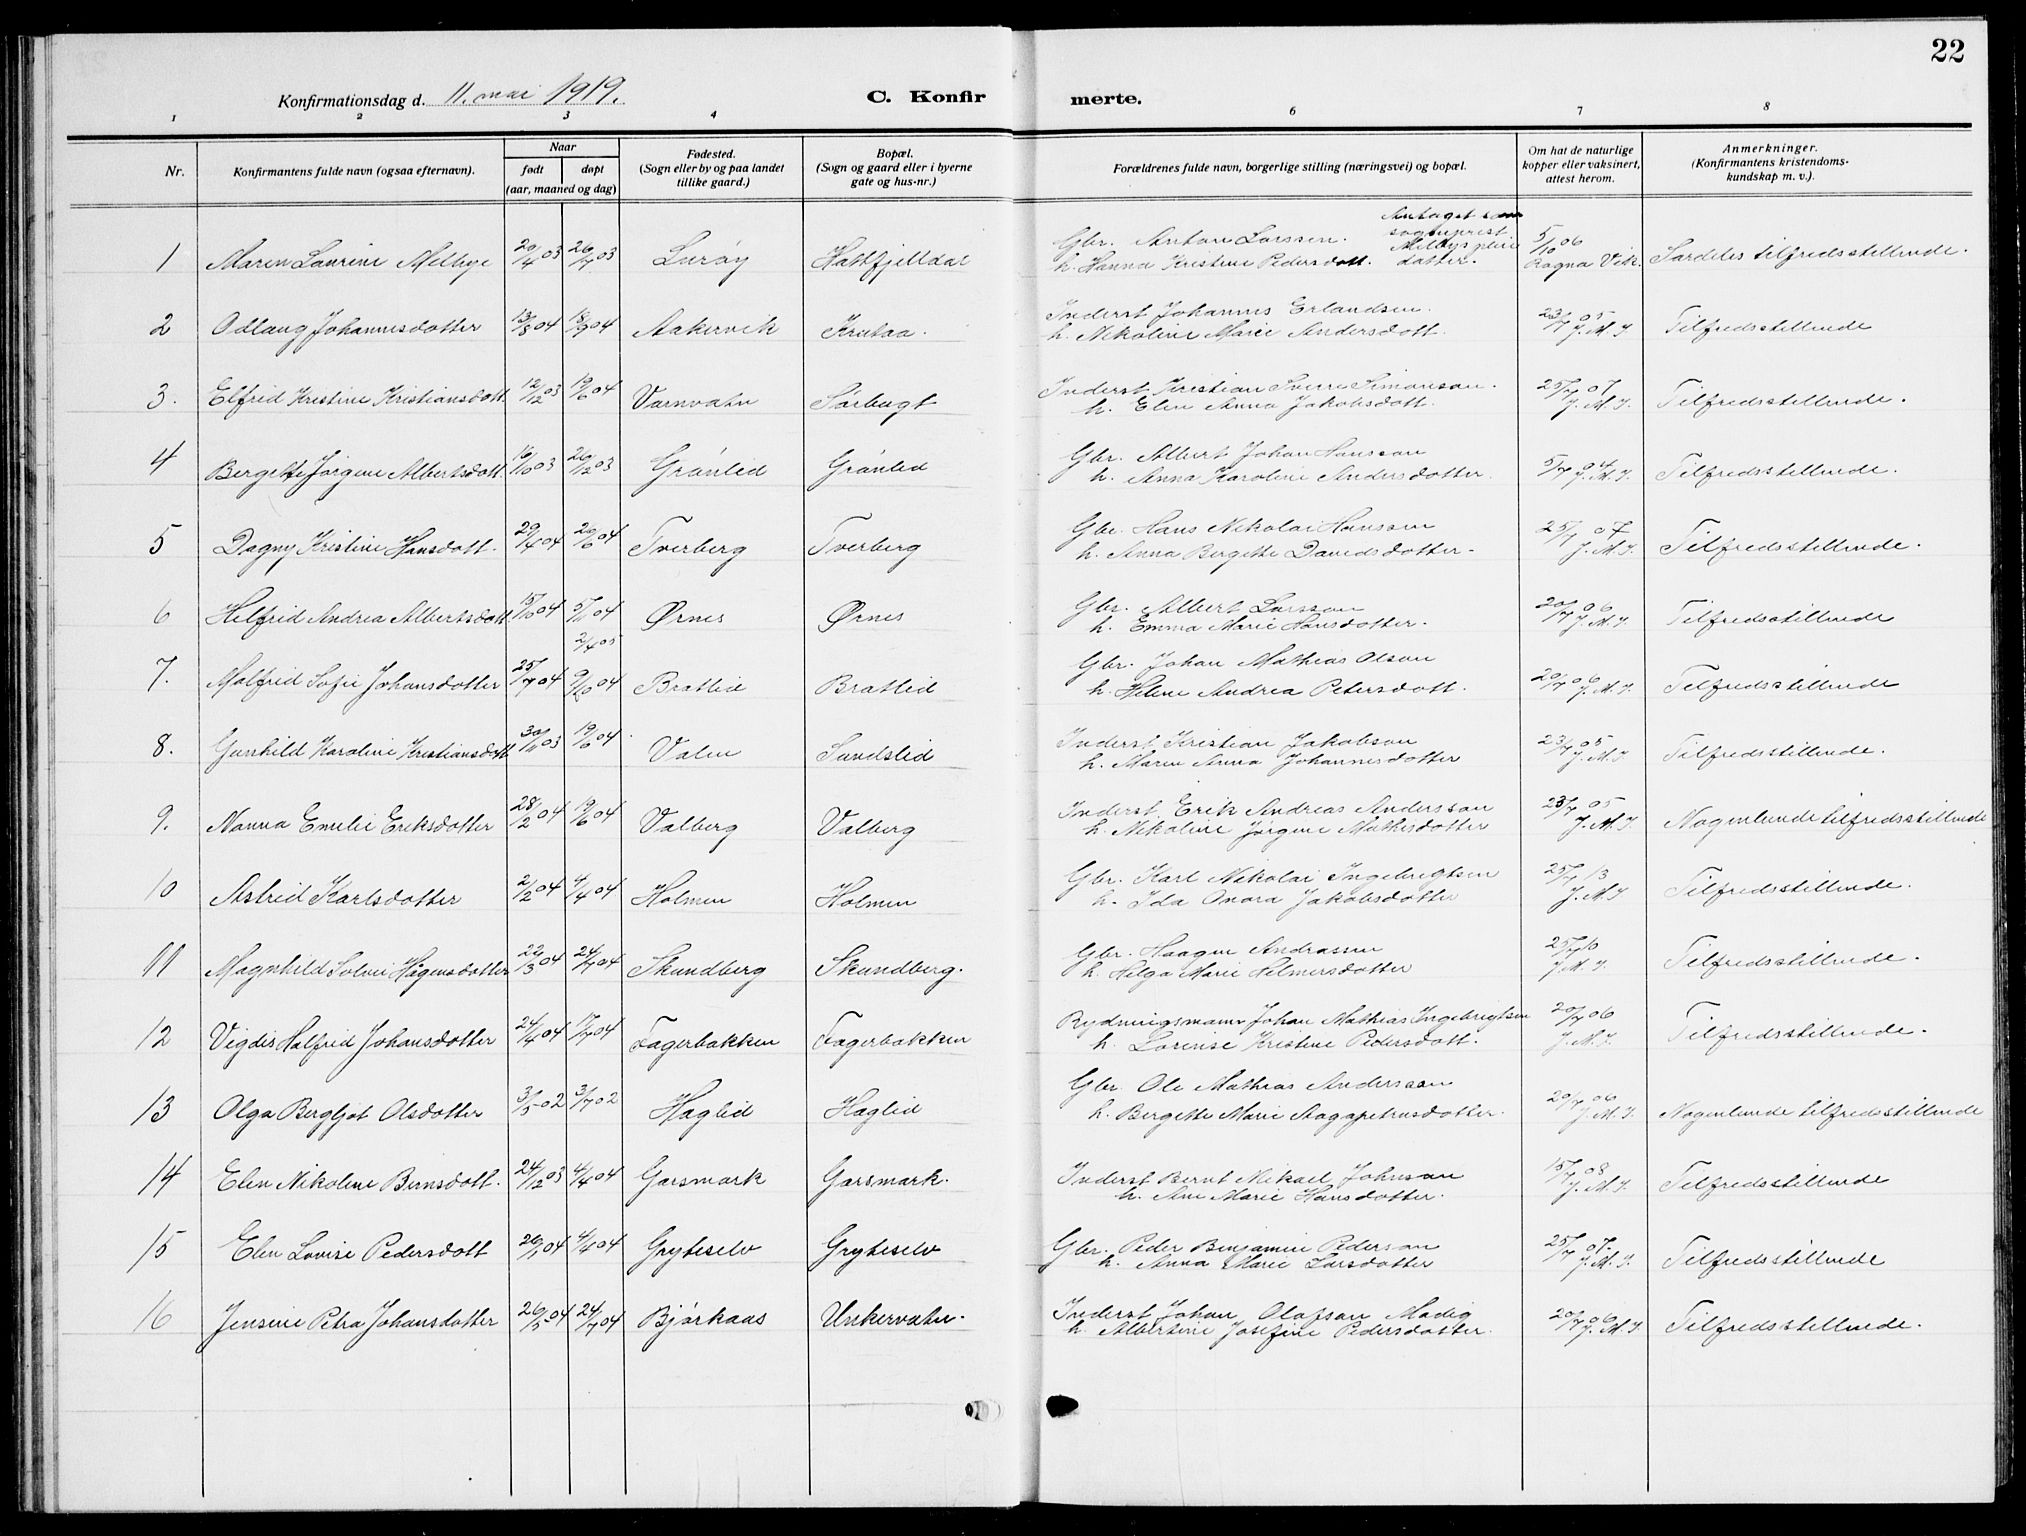 22
Konfirmationsdag d. 11. mai 1919.
C. Konfir merte.
1 2 3 4 6 7 8
Nr.
Konfirmantens fulde navn (ogsaa efternavn).
Naar
født døpt
(aar, maaned og dag)
Fødested.
(Sogn eller by og paa landet
tillike gaard.)
Bopæl.
(Sogn og gaard eller i byerne
gate og hus-nr.)
Forældrenes fulde navn, borgerlige stilling (næringsvei) og bopæl.
Om hat de naturlige
kopper eller vaksinert,
attest herom.
Anmerkninger.
(Konfirmantens kristendoms-
kundskap m. v.).
1 Maren Laurine Melbye 29/4 03 26/7 03 Lurøy Hattfjelldal
Gbr. Anton Larssen.
h. Hanna Kristine Pedersdott.
Antaget som
sogneprest
Melbys pleie
datter.
5/10 06
Ragna Vik. Særdeles tilfredsstillende.
2 Odlaug Johannesdotter 13/8 04 18/9 04 Aakervik Krutaa.
Inderst Johannes Erlandsen.
h. Nikoline Marie Andersdott.
23/7 05 J. M. J. Tilfredsstillende
3. Elfrid Kristine Kristiansdott. 12/12 03 19/6 04 Varnvatn Sørbugt
Inderst Kristian Sverre Simonson.
h. Elen Anna Jakobsdott.
25/7 07 J. M. J. Tilfredsstillende.
4 Bergette Jørgine Albertsdott. 16/10 03 26/12 03 Grønlid Grønlid
Gbr. Albert Johan Hansson
h. Anna Karoline Andersdotter.
5/7 04 J. M. J. Tilfredsstillende.
5 Dagny Kristine Hansdott. 29/4 04 26/6 04 Tverberg Tverberg
Gbr. Hans Nikolai Hanssen
h. Anna Bergitte Davidsdotter.
25/7 07 J. M. J. Tilfredsstillende.
6 Hilfrid Andrea Albertsdott. 15/10 04 5/11 04 Ørnes Ørnes
2/4 05
Gbr. Albert Larsson
h. Emma Marie Hansdotter.
20/7 06 J. M. J. Tilfredsstillende
7. Malfrid Sofie Johansdotter 25/7 04 9/10 04 Brattlid Brattlid
Gbr. Johan Mathias Olson
h. Helene Andrea Petersdott.
20/7 06 J. M. J. Tilfredsstillende
8. Gunhild Karoline Kristiansdott 30/11 03 19/6 04 Valen Sundslid
Inderst Kristian Jakobson
h. Maren Anna Johannesdotter
23/7 05 J. M. J. Tilfredsstillende.
9. Nanna Emelie Eriksdotter 28/2 04 19/6 04 Valberg Valberg
Inderst. Erik Andreas Andersson
h. Nikoline Jørgine Mathisdotter
23/7 05 J. M. J. Nogenlunde tilfredsstillende
10 Astrid Karlsdotter 2/2 04 4/4 04 Holmen Holmen
Gbr. Karl Nikolai Ingebrigtsen
h. Ida Onora Jakobsdotter
25/7 13 J. M. J Tilfredsstillende.
11 Magnhild Solvei Hågensdotter 22/3 04 24/7 04 Skundberg Skundberg.
Gbr. Haagen Andrassen
h. Helga Marie Helmersdotter
25/7 10 J. M. J. Tilfredsstillende.
12 Vigdis Halfrid Johansdotter 24/4 04 17/7 04 Fagerbakken Fagerbakken
Rydningsmann Johan Mathias Ingebrigtsen
h. Lorense Kristine Pedersdott.
20/7 06 J. M. J. Tilfredsstillende.
13 Olga Bergljot Olsdotter 3/5 02 3/7 02 Haglid Haglid
Gbr. Ole Mathias Andersson
h. Bergette Marie Aagapetrusdotter.
20/7 06 J. M. J. Nogenlunde tilfredsstillende
14 Elen Nikoline Bernsdott. 24/12 03 4/4 04 Garsmark Garsmark.
Inderst Bernt Mikael Johnson
h. Ane Marie Hansdotter.
15/7 08 J. M. J. Tilfredsstillende
15 Elen Lovise Pedersdott 26/1 04 4/4 04 Gryteselv Gryteselv
Gbr. Peder Benjamin Pederson
h. Anna Marie Larsdotter
25/7 07. J. M. J. Tilfredsstillende
16 Jensine Petra Johansdotter 26/5 04 24/7 04 Bjørkaas Unkervatn.
Inderst Johan Olofson Mådig
h. Albertine Josefine Pedersdotter.
20/7 06 J. M. J. Tilfredsstillende.